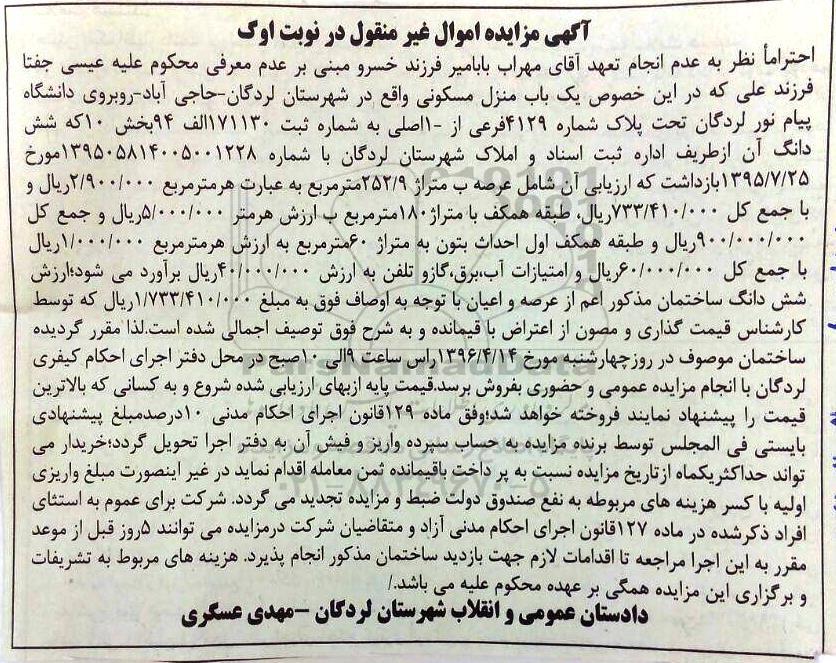 آگهی مزایده اموال غیر منقول در نوبت اوک
احتراماً نظر به عدم انجام تعهد آقای مهراب بابامیر فرزند خسرو مبنی بر عدم معرفی محکوم علیه عیسی جفتا
فرزند علی که در این خصوص یک باب منزل مسکونی واقع در شهرستان لردگان-حاجی آباد-روبروی دانشگاه
پیام نور لردگان تحت پلاک شماره ۴۱۲۹فرعی از -۱اصلی به شماره ثبت ۱۷۱۱۳۰الف ۹۴بخش ۱۰که شش
دانگ آن ازطریف اداره ثبت اسناد و املاک شهرستان لردگان با شماره ۱۳۹۵۰۵۸۱۴۰۰۵۰۰۱۲۲۸مورخ
۱۳۹۵/۷/۲۵بازداشت که ارزیابی آن شامل عرصه ب متراژ ۲۵۲/۹مترمربع به عبارت هرمترمربع ۲/۹۰۰/۰۰۰ریال و
با جمع کل ۷۳۳/۴۱۰/۰۰۰ریال، طبقه همکف با متراژ۱۸۰مترمربع ب ارزش هرمتر ۵/۰۰۰/۰۰۰ریال و جمع کل
۹۰۰/۰۰۰/۰۰۰ریال و طبقه همکف اول احداث بتون به متراژ ۶۰مترمربع به ارزش هرمترمربع ۱/۰۰۰/۰۰۰ریال
با جمع کل ۶۰/۰۰۰/۰۰۰ریال و امتیازات آب،برق،گازو تلفن به ارزش ۴۰/۰۰۰/۰۰۰ریال برآورد می شود؛ارزش
شش دانگ ساختمان مذکور اعم از عرصه و اعیان با توجه به اوصاف فوق به مبلغ ۱/۷۳۳/۴۱۰/۰۰۰ریال که توسط
کارشناس قیمت گذاری و مصون از اعتراض با قیمانده و به شرح فوق توصیف اجمالی شده است.لذا مقرر گردیده
ساختمان موصوف در روزچهارشنبه مورخ ۱۳۹۶/۴/۱۴راس ساعت ۹الی ۱۰صبح در محل دفتر اجرای احکام کیفری
لردگان با انجام مزایده عمومی و حضوری بفروش برسد.قیمت پایه ازبهای ارزیابی شده شروع و به کسانی که بالاترین
قیمت را پیشنهاد نمایند فروخته خواهد شد؛وفق ماده ۱۲۹قانون اجرای احکام مدنی ۱۰درصدمبلغ پیشنهادی
بایستی فی المجلس توسط برنده مزایده به حساب سپرده واریز و فیش آن به دفتر اجرا تحویل گردد؛خریدار می
تواند حداکثریکماه ازتاریخ مزایده نسبت به پر داخت باقیمانده ثمن معامله اقدام نماید در غیر اینصورت مبلغ واریزی
اولیه با کسر هزینه های مربوطه به نفع صندوق دولت ضبط و مزایده تجدید می گردد. شرکت برای عموم به استثای
افراد ذکرشده در ماده ۱۲۷قانون اجرای احکام مدنی آزاد و متقاضیان شرکت درمزایده می توانند ۵روز قبل از موعد
مقرر به این اجرا مراجعه تا اقدامات لازم جهت بازدید ساختمان مذکور انجام پذیرد. هزینه های مربوط به تشریفات
و برگزاری این مزایده همگی بر عهده محکوم علیه می باشد./
دادستان عمومی و انقلاب شهرستان لردگان -مهدی عسگری
ParsNamadData